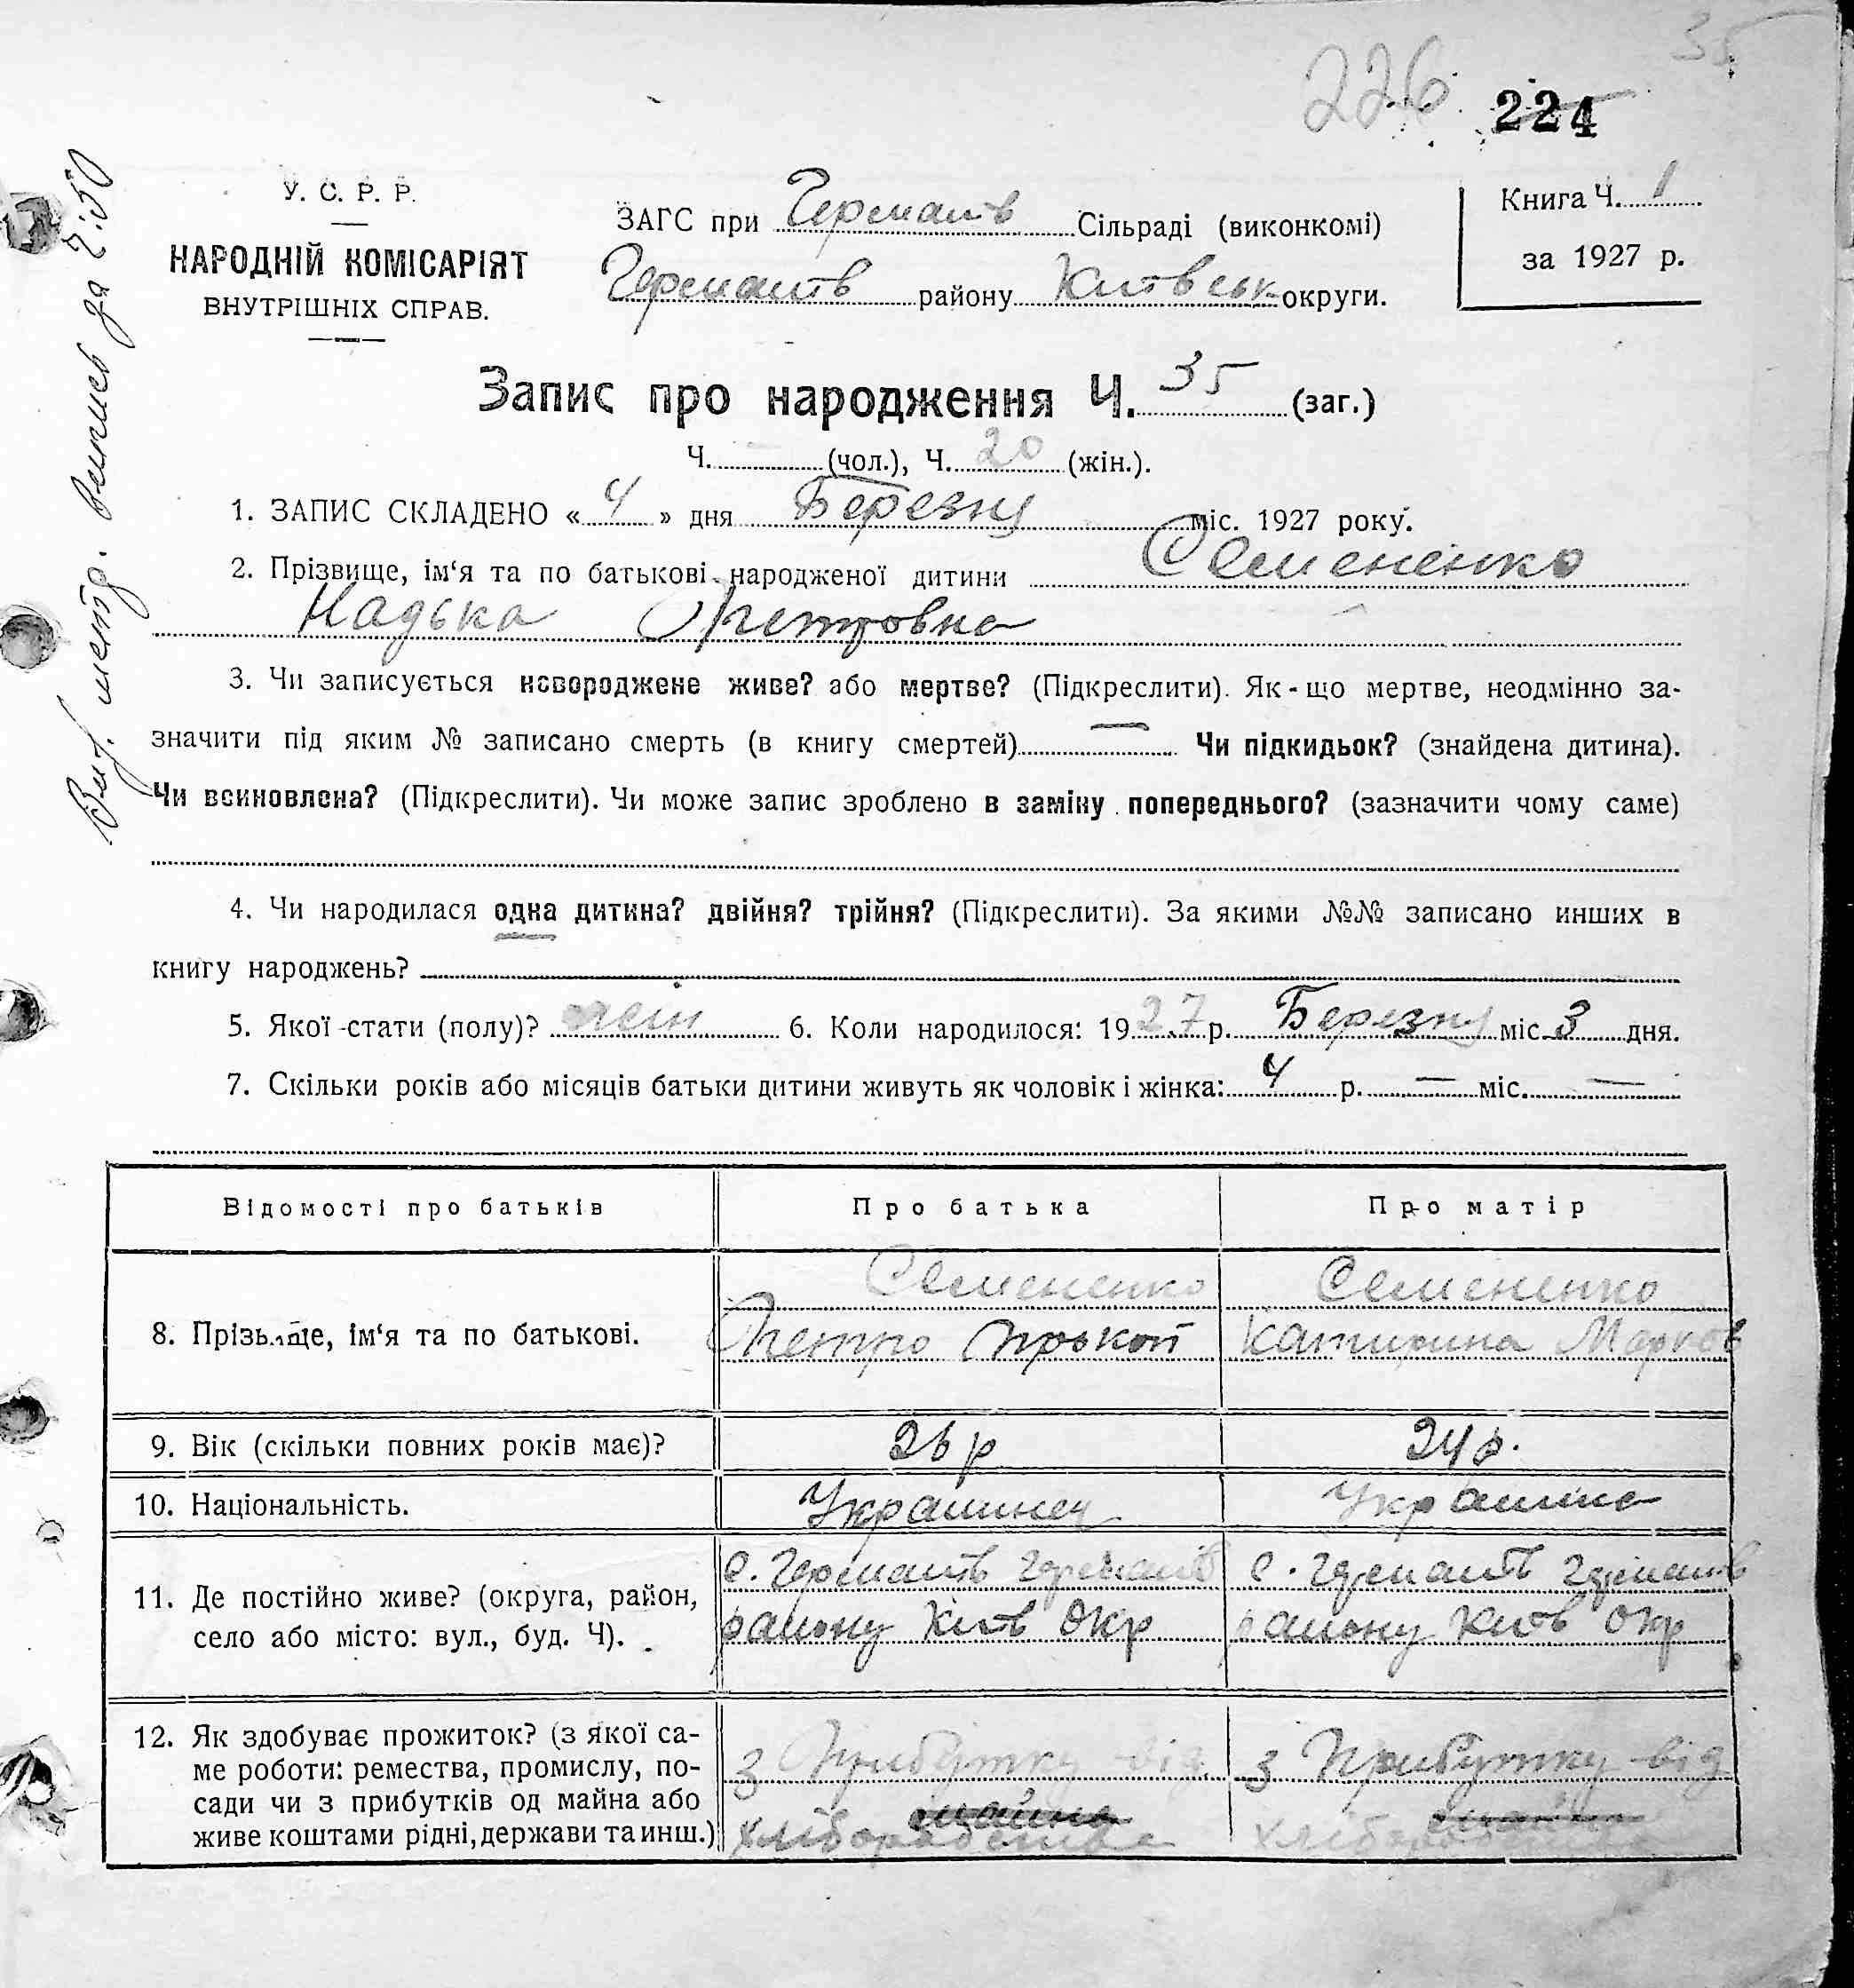 35
226 224
У. С. Р. Р.
НАРОДНІЙ КОМІСАРІЯТ
ВНУТРІШНІХ СПРАВ.
ЗАГС при Германів Сільраді (виконкомі)
Германів району Київськ округи.
Книга Ч. 1
за 1927 р.
Запис про народження Ч. 35 (заг.)
Ч. — (чол.), Ч. 20 (жін.).
1. ЗАПИС СКЛАДЕНО « 4 » дня Березня міс. 1927 року.
2. Прізвище, ім‘я та по батькові народженої дитини Семененко
Надька Петровна
3. Чи записується новороджене живе? або мертве? (Підкреслити). Як-що мертве, неодмінно за-
значити під яким № записано смерть (в книгу смертей) — Чи підкидьок? (знайдена дитина).
Чи всиновлена? (Підкреслити). Чи може запис зроблено в заміну попереднього? (зазначити чому саме)
4. Чи народилася одна дитина? двійня? трійня? (Підкреслити). За якими №№ записано инших в
книгу народжень?
5. Якої стати (полу)? жін 6. Коли народилося: 1927 р. Березня міс. 3 дня.
7. Скільки років або місяців батьки дитини живуть як чоловік і жінка: 4 р. — міс. —
Відомості про батьків Про батька Про матір
Семененко Семененко
8. Прізвище, ім‘я та по батькові. Петро Прокоп Катирина Марков
9. Вік (скільки повних років має)? 26 р 24 р.
10. Національність. Украинец Украинка
11. Де постійно живе? (округа, район,
село або місто: вул., буд. Ч).
с. Германів Германів
району Київ Окр
с. Германів Германів
району Київ Окр
12. Як здобуває прожиток? (з якої са-
ме роботи: ремества, промислу, по-
сади чи з прибутків од майна або
живе коштами рідні, держави та инш.)
З Прибутку від
майна
хліборобства
З Прибутку від
майна
хліборобства
Вид. метр. выпись за 2:50